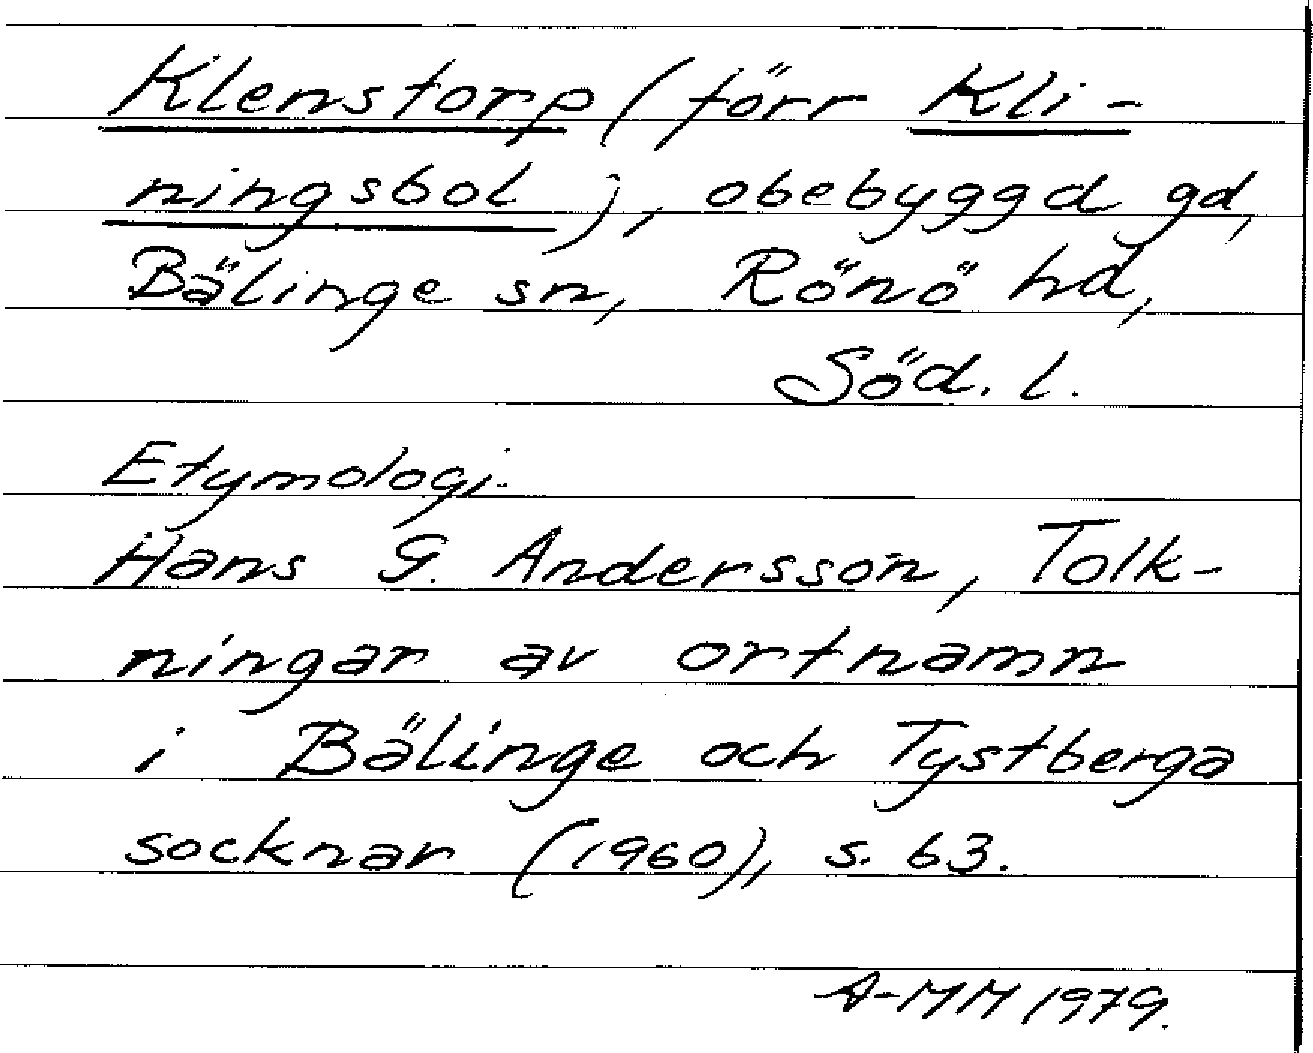 Klenstorp (förr Kli-
ningsbol), obebyggd gd,
Bälinge sn, Rönö hd,
Söd. l.
Etymologi.
Hans G. Andersson, Tolk-
ningar av ortnamn
i Bälinge och Tystberga
socknar (1960), s. 63.
A-MM 1979.